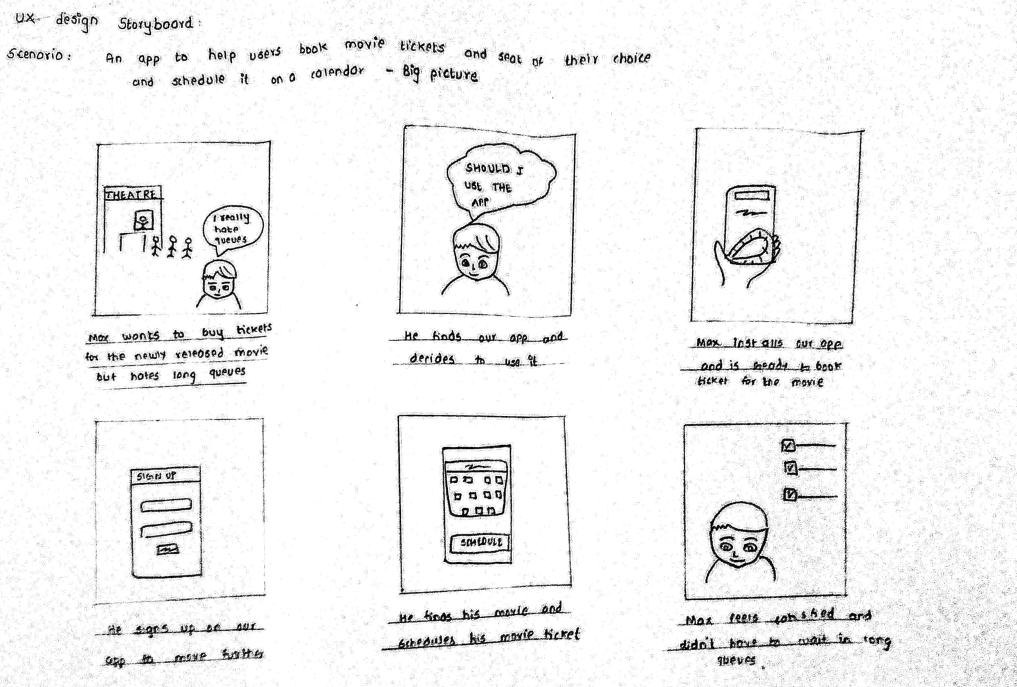 UX design Storyboard:
Scenario: An app to help users book movie tickets and seat of their choice
and schedule it on a calendar - Big picture
THEATRE
I really
hate
queues
SHOULD I
USE THE
APP
Max wants to buy tickets
for the newly released movie
but hates long queues
He finds our app and
decides to use it
Max installs our app
and is ready to book
ticket for the movie
SIGN UP
SCHEDULE
He signs up on our
app to move further
He finds his movie and
schedules his movie ticket
Max feels satisfied and
didn't have to wait in long
queues.